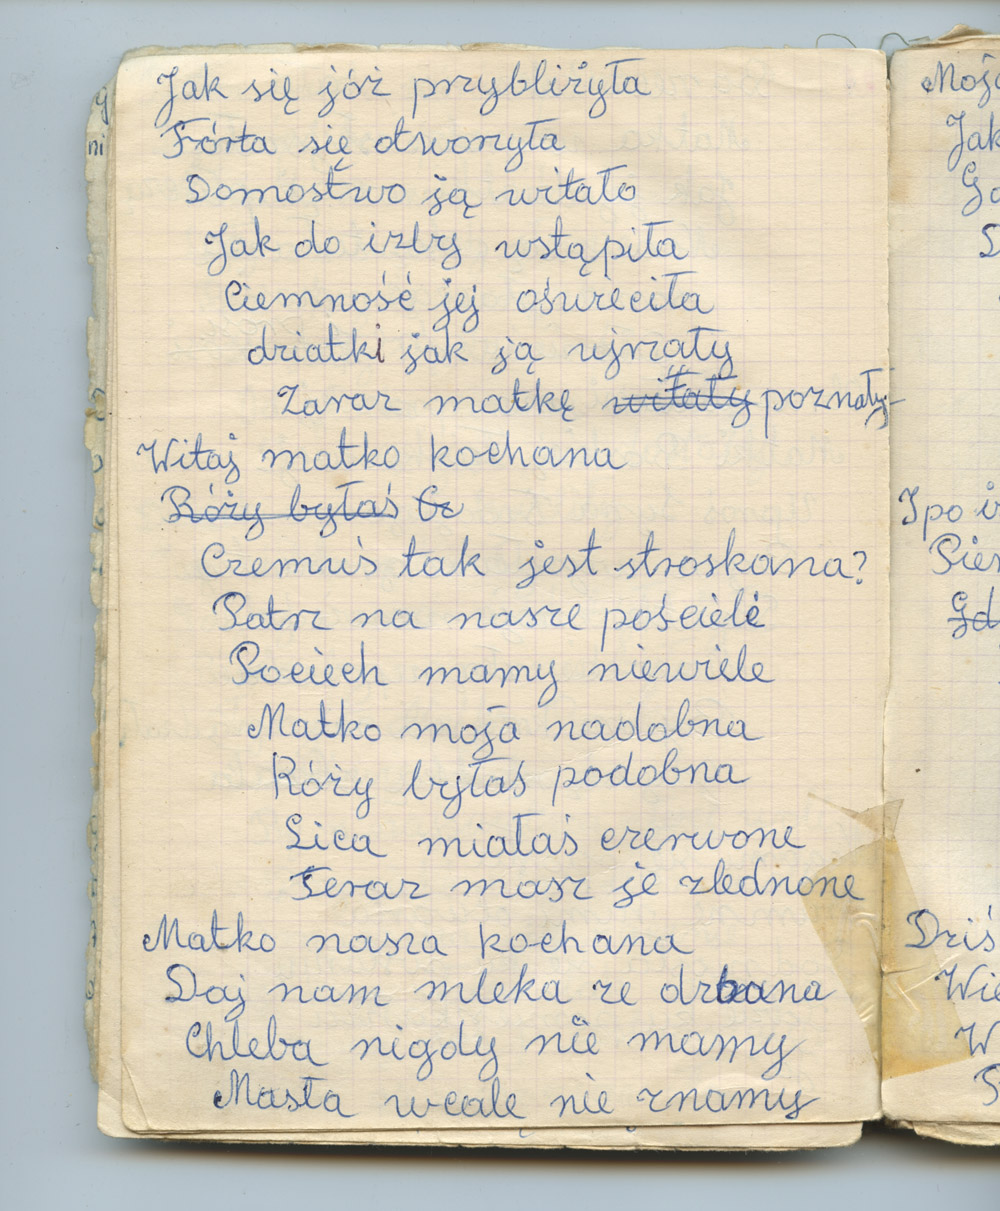 Jak się jóż przybliżyła
Fórta się otworzyła
Domostwo ją witało
Jak do izby wstąpiła
Ciemność jej oświeciła
dziatki jak ją ujrzały
Zaraz matkę witały poznały-
Witaj matko kochana
Róży byłaś Cz
Czemuś tak jest stroskana?
Patrz na nasze pościele
Pociech mamy niewiele
Matko moja nadobna
Róży byłaś podobna
Lica miałaś czerwone
Teraz masz je zblednone
Matko nasza kochana
Daj nam mleka ze dzbana
Chleba nigdy nie mamy
Masła wcale nie znamy
Jak
I po
Dziś
W